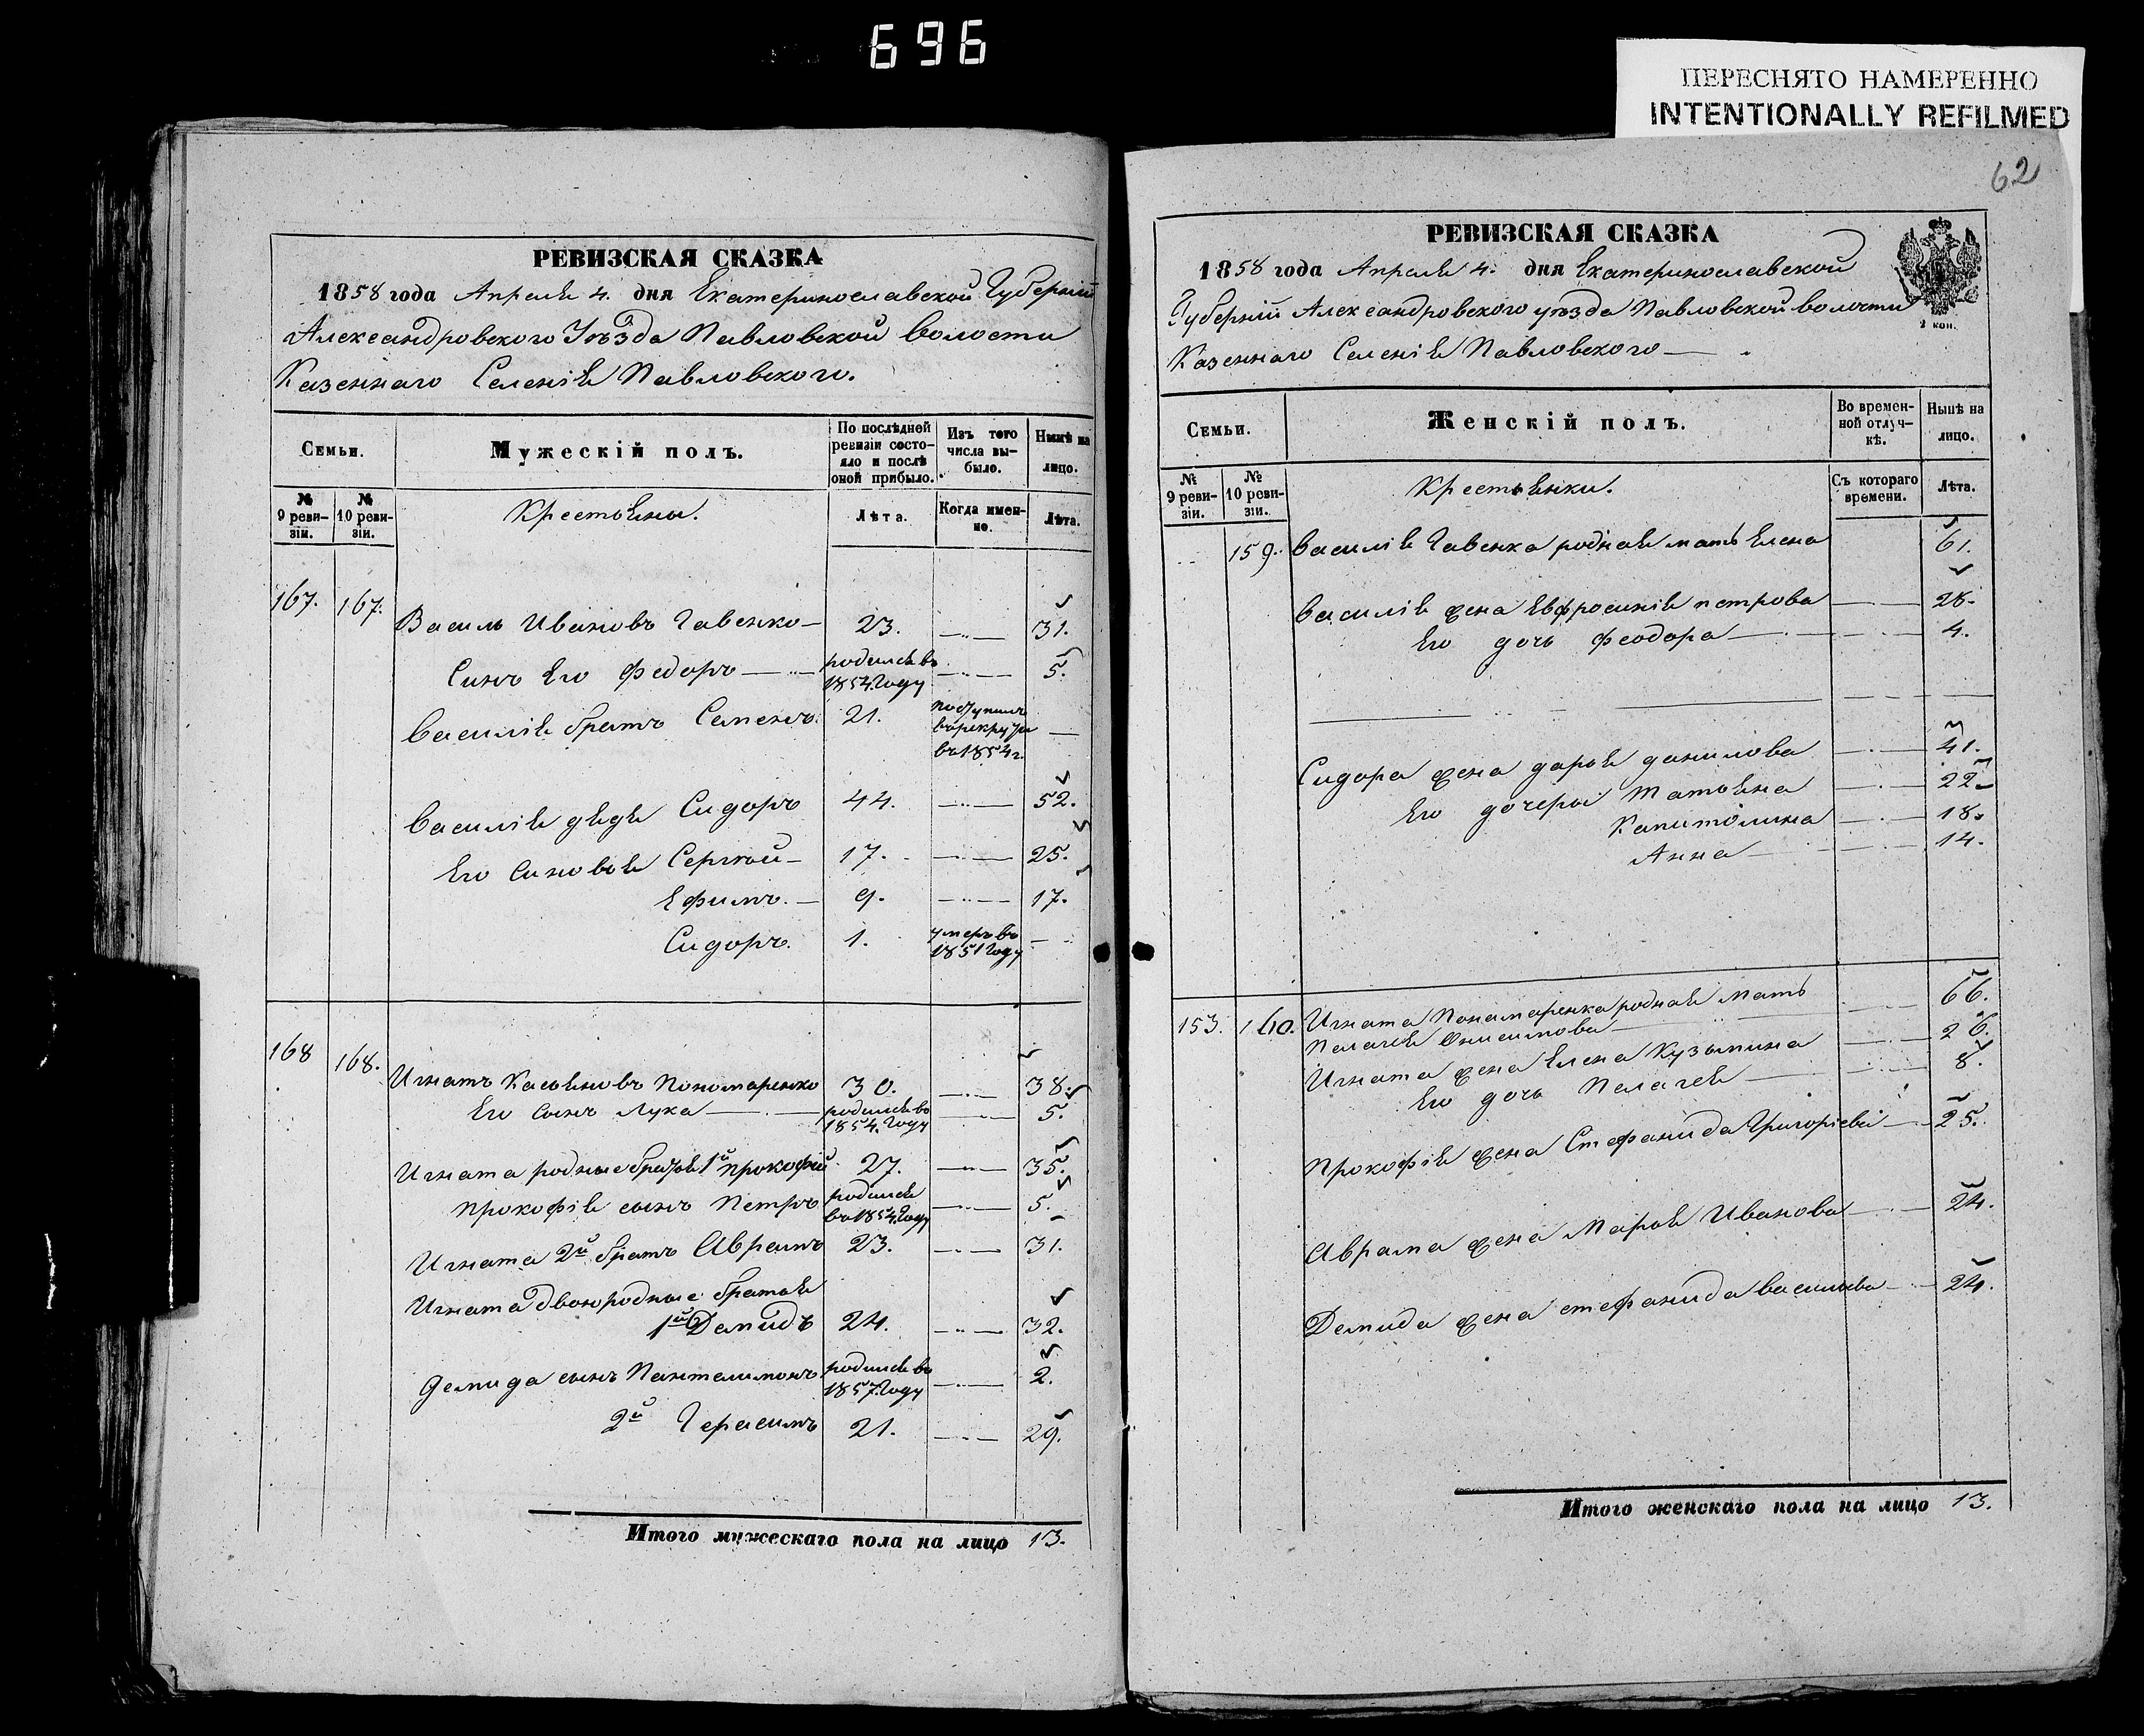 696
ПЕРЕСНЯТО НАМЕРЕННО
INTENTIONALLY REFILMED
РЕВИЗСКАЯ СКАЗКА
1858 года Апреля 4. дня Екатеринославской Губерніи
Александровского Уѣзда Павловской волости
Казеннаго Селенія Павловского.
Семьи.
Мужескій полъ.
По послѣдней ревизіи состояло и послѣ оной прибыло.
Изъ того числа выбыло.
Нынѣ на лицо.
№ 9 ревизіи.
№ 10 ревизіи.
Крестьяны.
Лѣта.
Когда именно.
Лѣта.
167. 167.
Василь Ивановъ Гавенко 23. 31.
Синъ Его Федоръ родился въ 1854. Году 5.
Василія братъ Семенъ. 21. поступилъ въ рекруты въ 1854 г.
Василія дядя Сидоръ 44. 52.
Его Синовья Сергѣй 17. 25.
Ефимъ. 9. 17.
Сидоръ. 1. умеръ въ 1851 Году
168 168.
Игнатъ Касьяновъ Пономаренко 30. 38.
Его сынъ Лука родился въ 1854. Году 5.
Игната родные братья 1й прокофій 27. 35.
прокофія сынъ Петръ родился въ 1854. Году 5.
Игната 2й братъ Аврамъ 23. 31.
Игната двоюродные братья
1й Демидъ 24. 32.
Демида сынъ Пантелимонъ родился въ 1857. Году 2.
2й Герасимъ 21. 29.
Итого мужескаго пола на лицо 13.
62
РЕВИЗСКАЯ СКАЗКА
1858 года Апреля 4. дня Екатеринославской
Губерніи Александровского уѣзда Павловской волости
Казеннаго Селенія Павловского
2 коп.
Семьи.
Женскій полъ.
Во временной отлучкѣ.
Нынѣ на лицо.
№ 9 ревизіи.
№ 10 ревизіи.
Крестьянки.
Съ котораго времени.
Лѣта.
159. Василія Гавенка родная мать Елена 61.
Василія жена Евфросинія петрова 28.
Его дочь феодора 4.
Сидора жена дарья данилова 41.
Его дочеры Татьяна 22
Капитолина 18.
Анна 14.
153. 160. Игната Понамаренка родная мать 66.
Пелагея Онисимова
Игната жена Елена Кузьмина 26.
Его дочь Пелагея 8.
Прокофія жена Стефанида Григорієва 25.
Аврама жена Марья Иванова 24.
Демида жена стефанида васильева 24.
Итого женскаго пола на лицо 13.